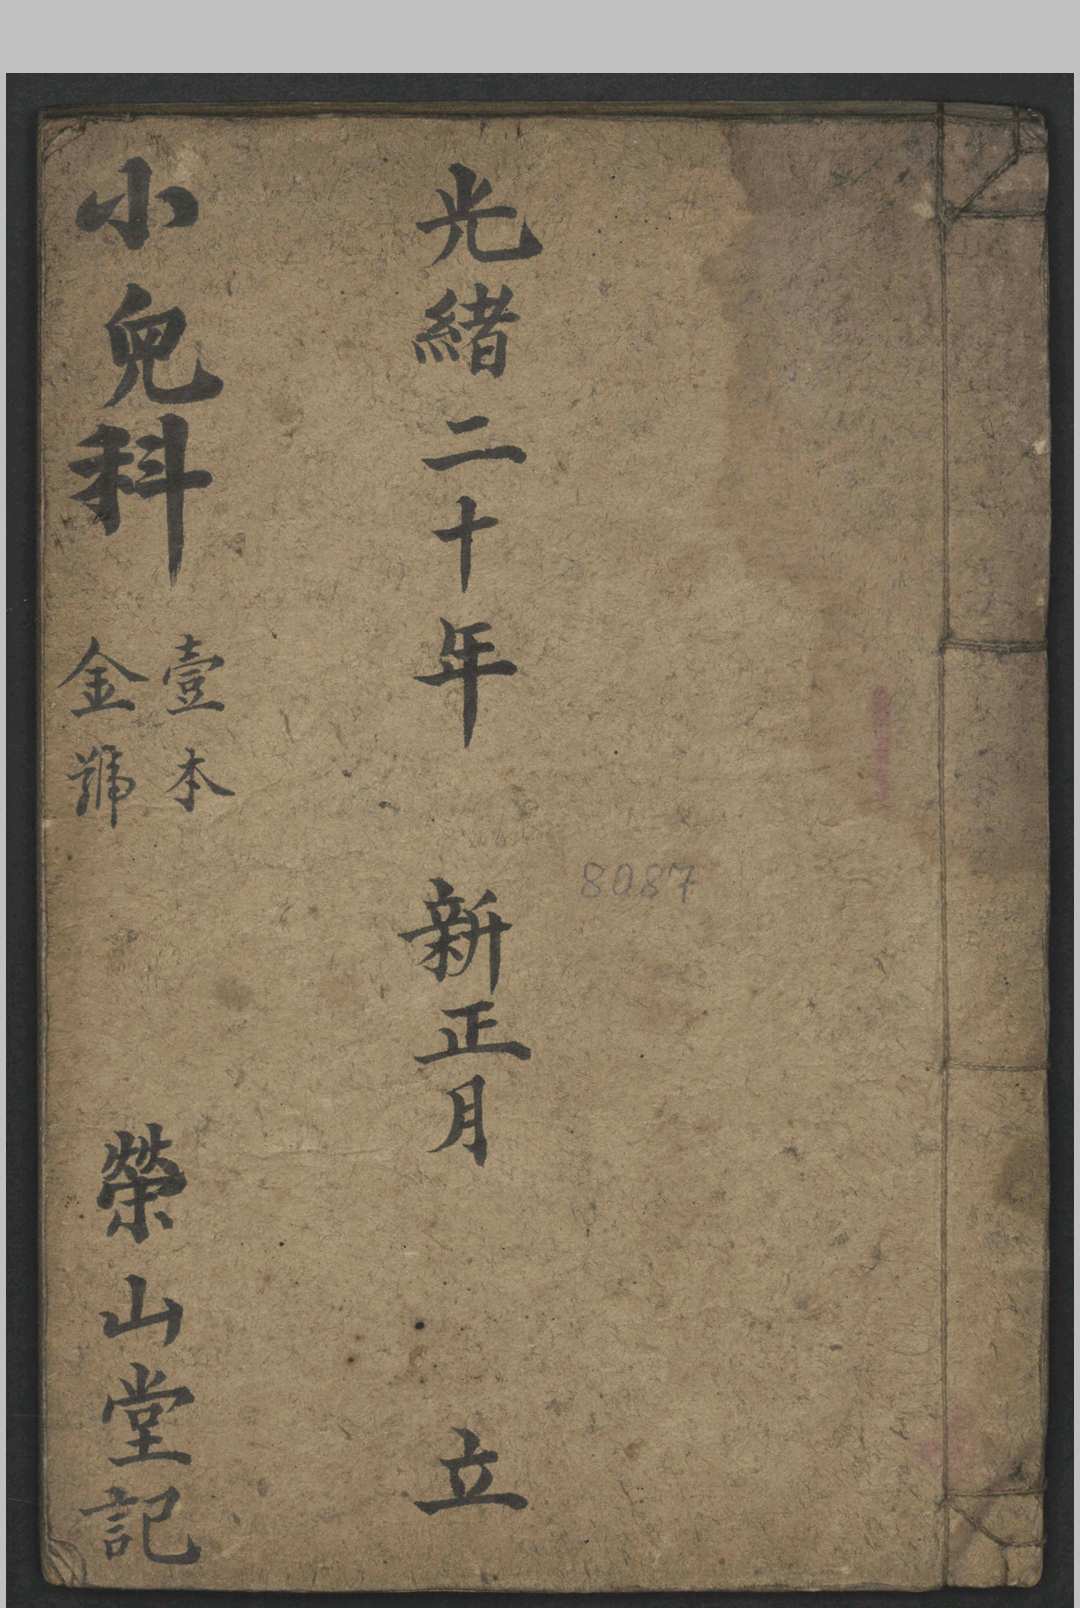 光緒二十年 新正月 立
小兒科
壹本
金號
榮山堂記
8087